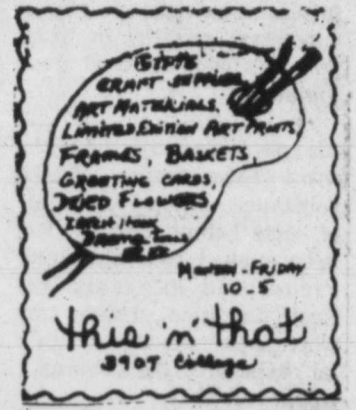 GIFTS
CRAFT SUPPLIES
ART MATERIALS,
LIMITED EDITION ART PRINTS,
FRAMES, BASKETS,
GREETING CARDS,
DRIED FLOWERS,
MONDAY - FRIDAY
10 - 5
this 'n' that
3907 College